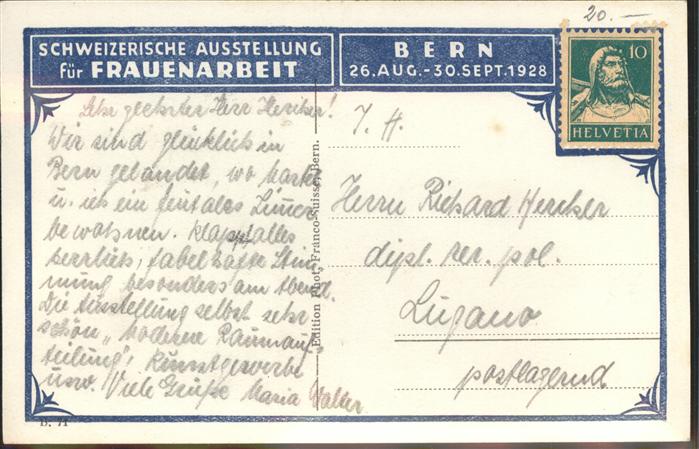 20.—
SCHWEIZERISCHE AUSSTELLUNG
für FRAUENARBEIT
BERN
26. AUG.-30. SEPT. 1928
10
HELVETIA
Sehr geehrter Herr Henker!
Wir sind glücklich in
Bern gelandet, wo
u. ich ein feudales Zimmer
bewohnen. Klappt alles
herrlich, fabelhafte Stim-
mung besonders am Abend.
Die Ausstellung selbst sehr
schön „moderne Raumauf-
teilung", Kunstgewerbe
usw. Viele Grüße Maria Walter.
Edition Phot. Franco-Suisse, Bern.
T. H.
Herrn Richard Henker
dipl. rer. pol.
Lugano
postlagernd
B. 71